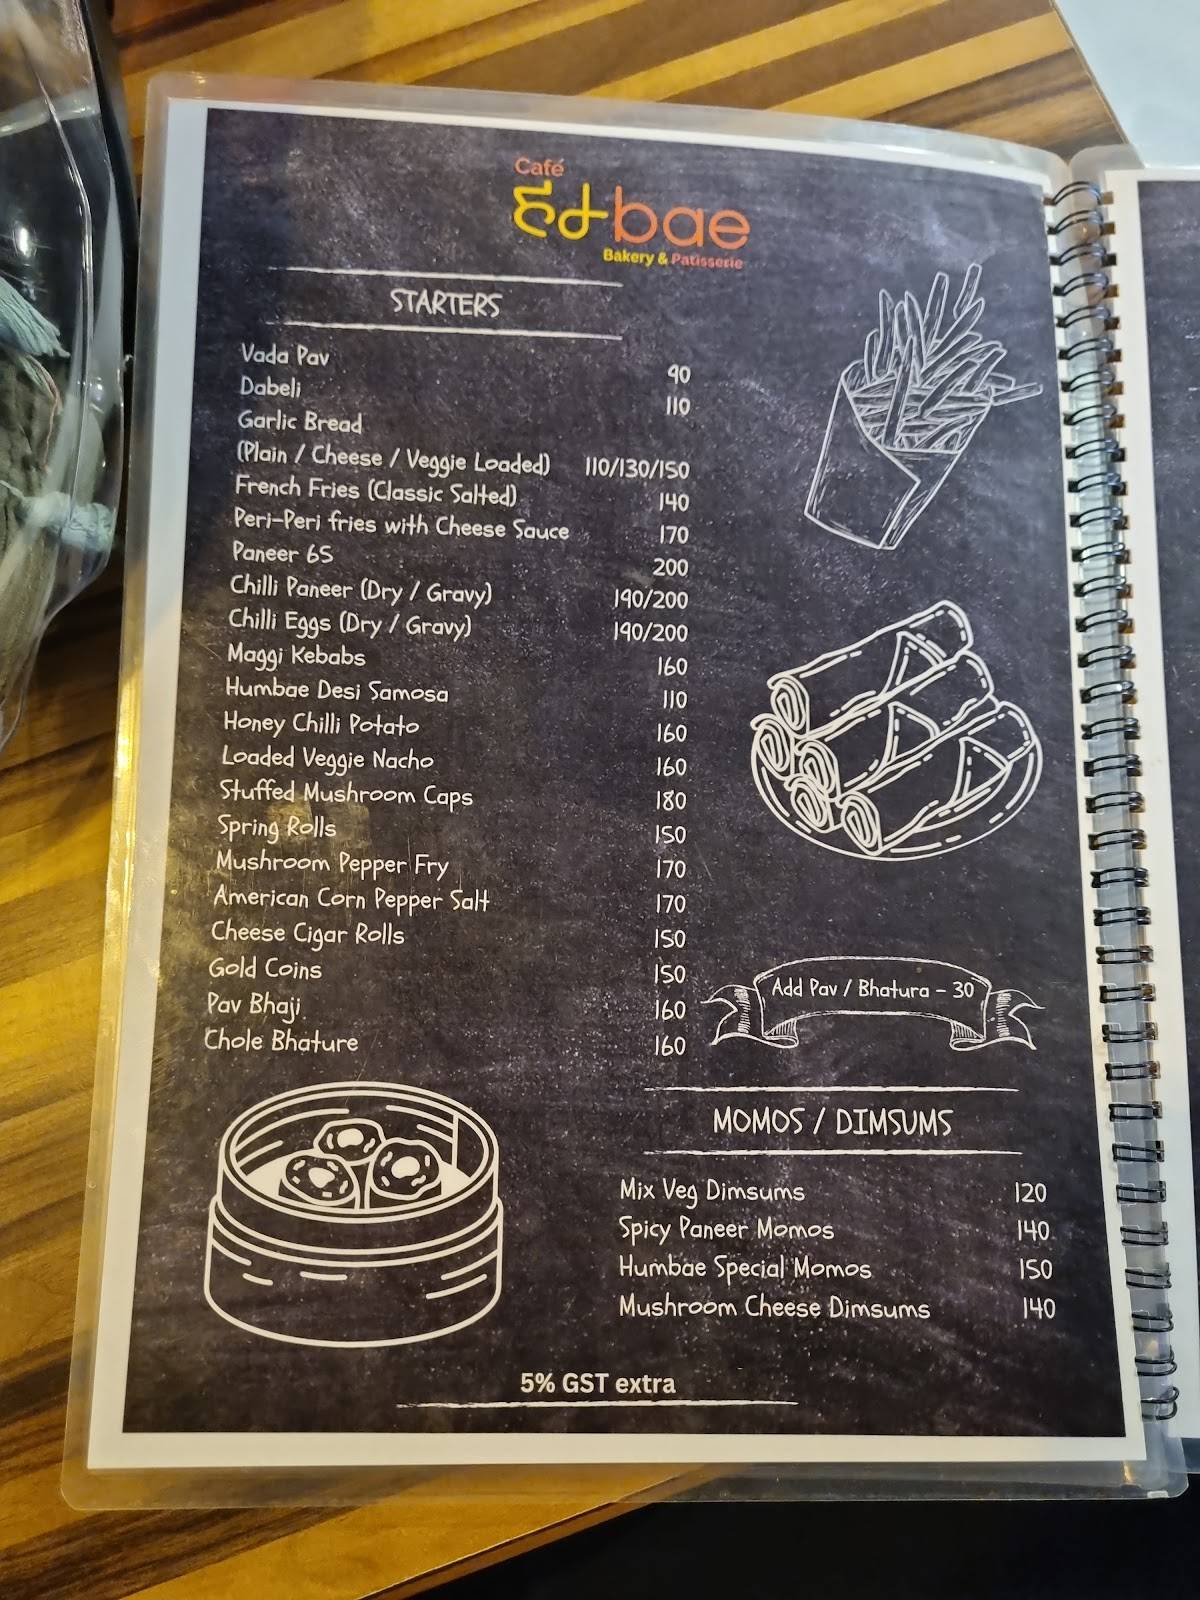 Café
हमbae
Bakery & Patisserie
STARTERS
Vada Pav 90
Dabeli 110
Garlic Bread
(Plain / Cheese / Veggie Loaded) 110/130/150
French Fries (Classic Salted) 140
Peri-Peri fries with Cheese Sauce 170
Paneer 65 200
Chilli Paneer (Dry / Gravy) 190/200
Chilli Eggs (Dry / Gravy) 190/200
Maggi Kebabs 160
Humbae Desi Samosa 110
Honey Chilli Potato 160
Loaded Veggie Nacho 160
Stuffed Mushroom Caps 180
Spring Rolls 150
Mushroom Pepper Fry 170
American Corn Pepper Salt 170
Cheese Cigar Rolls 150
Gold Coins 150
Pav Bhaji 160
Chole Bhature 160
Add Pav / Bhatura - 30
MOMOS / DIMSUMS
Mix Veg Dimsums 120
Spicy Paneer Momos 140
Humbae Special Momos 150
Mushroom Cheese Dimsums 140
5% GST extra